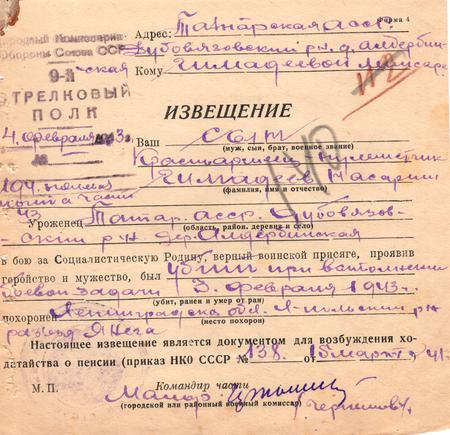 Форма 4
Народный Комиссариат
Обороны Союза ССР
9-й
СТРЕЛКОВЫЙ
ПОЛК
4 февраля 1943г.
№
Адрес: Татарская АССР
Дубовязовский р-н д. Алдербин-
ская
Кому Гимадеевой
112
ИЗВЕЩЕНИЕ
Ваш сын
(муж, сын, брат, военное звание)
Красноармеец пулеметчик
Гимадеев Насарии
(фамилия, имя и отчество)
Уроженец Татар. АССР. Дубовязов-
(область, район, деревня и село)
ский р-н дер. Алдербинская
в бою за Социалистическую Родину, верный воинской присяге, проявив
геройство и мужество, был убит при выполнении
боевой задачи 3. февраля 1943г.
(убит, ранен и умер от ран)
похоронен Ленинградская обл.
(место похорон)
разъезд Янега
Настоящее извещение является документом для возбуждения хо-
датайства о пенсии (приказ НКО СССР № 138. 15 марта 41г.
М. П.
Командир части
Майор
(городской или районный военный комиссар)